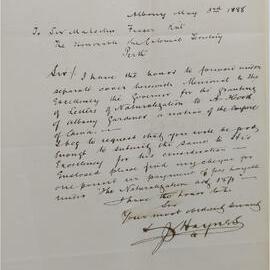 Albany May 3rd 1888
To Sir Malcolm Fraser KCMG
The Honorable the Colonial Secretary
Perth
Sir/ I have the honor to forward under
separate cover herewith Memorial to His
Excellency the Governor for the Granting
of Letters of Naturalization to A. Hook
of Albany Gardener a native of the Empire
of China
I beg to request that you will be good
enough to submit the same to His
Excellency for his consideration
Enclosed please find my cheque for
one pound in payment of fee payable
under "The Naturalization Act, 1871"
I have the honor to be
Sir
Your most obedient servant
Haynes